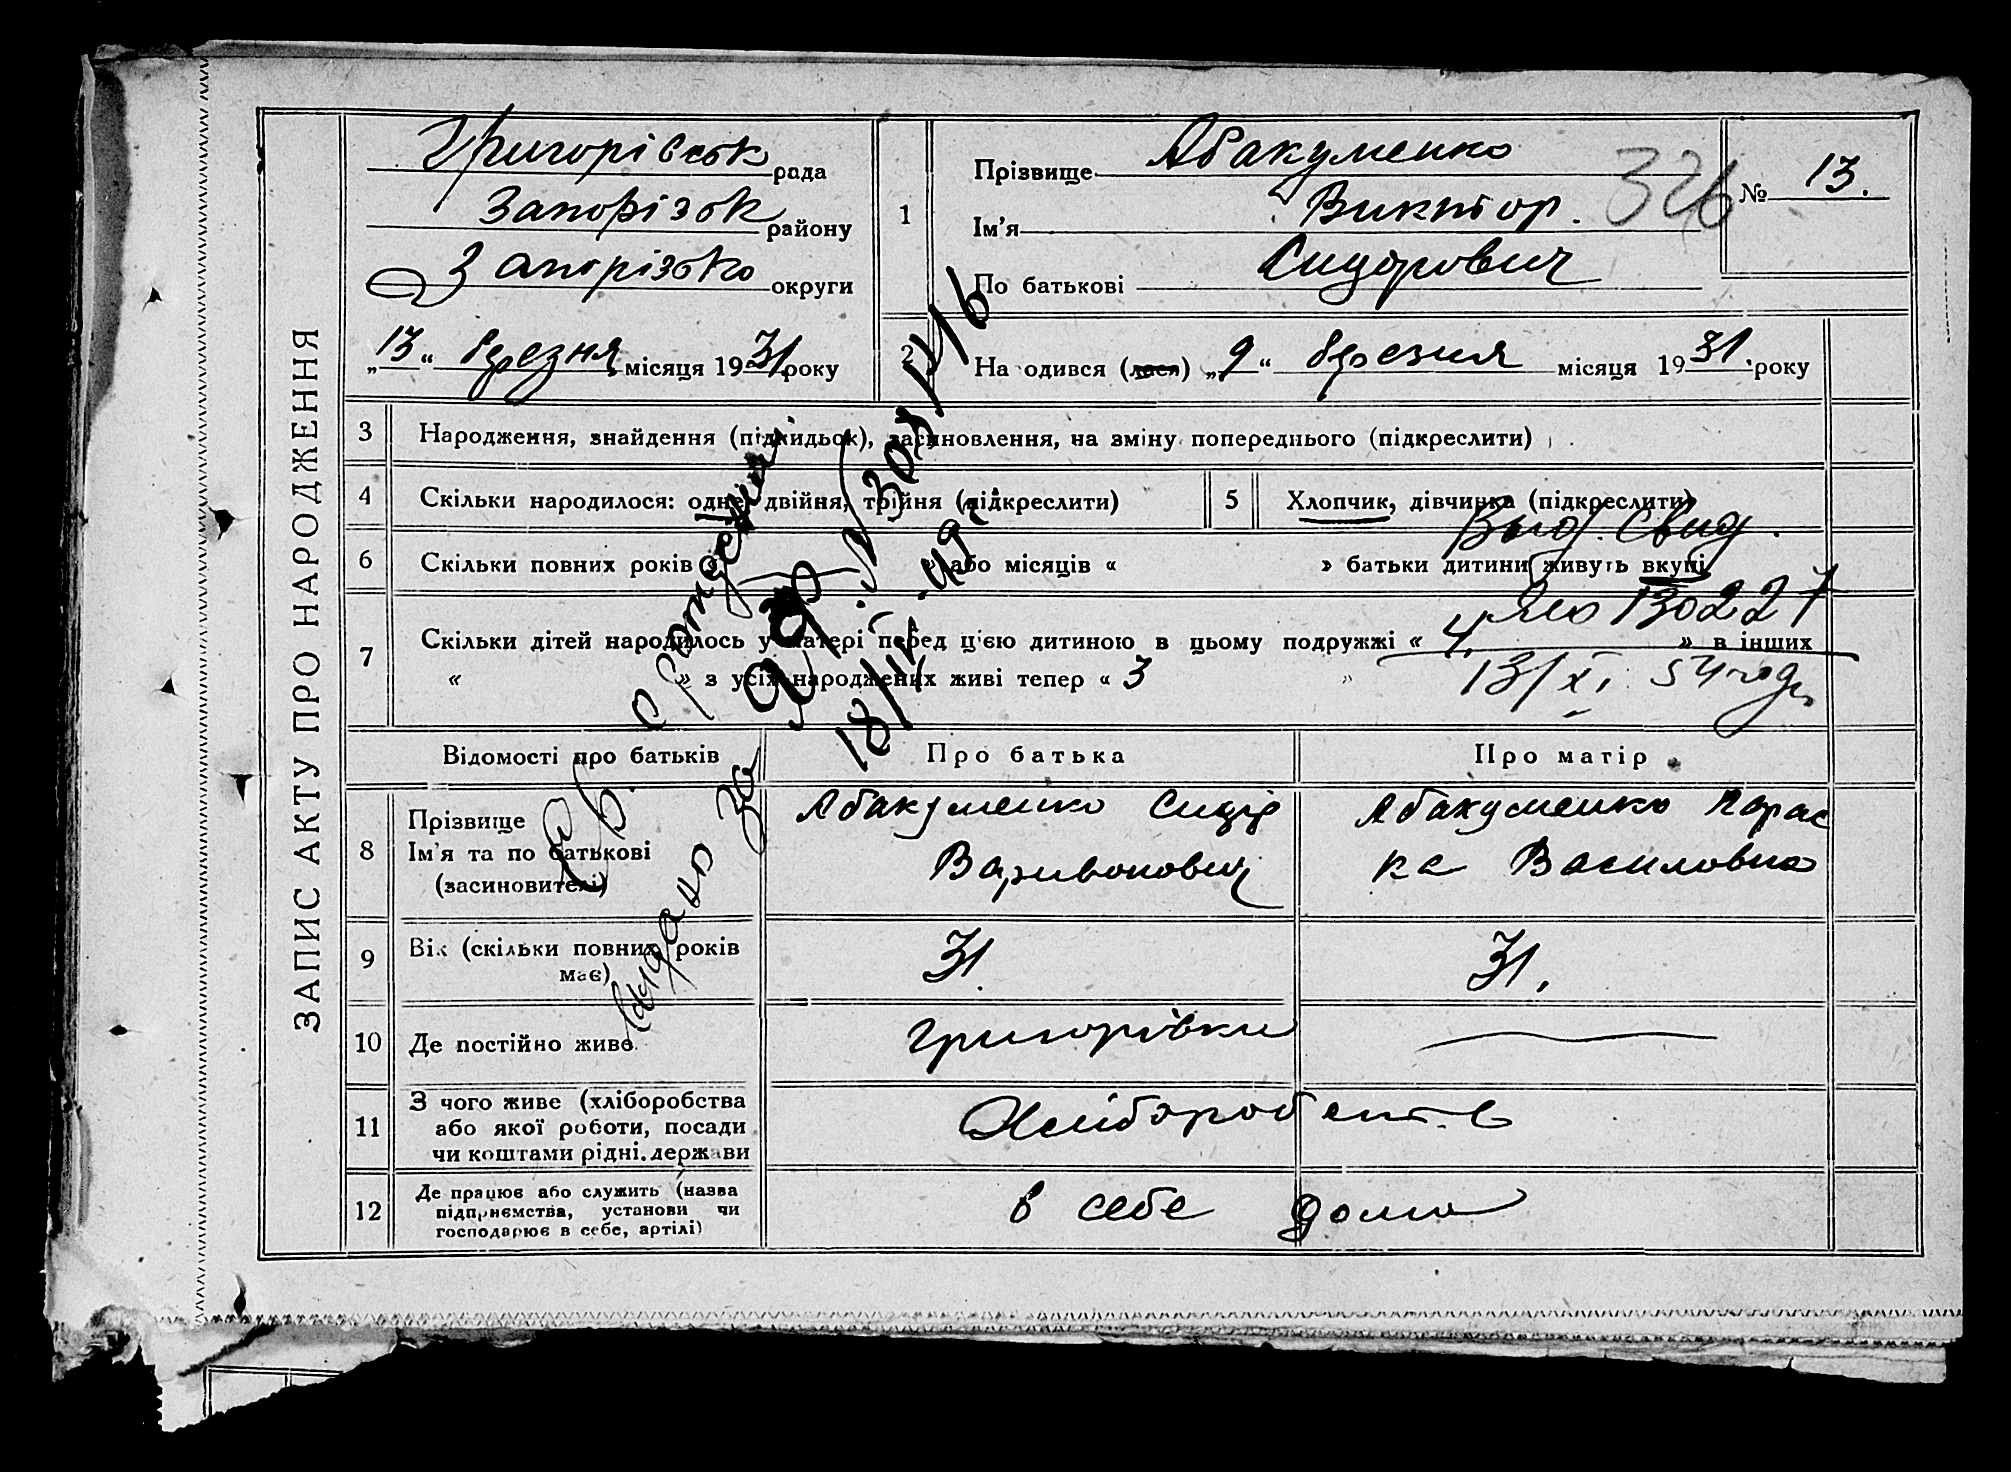 ЗАПИС АКТУ ПРО НАРОДЖЕННЯ
Григорівськ рада
Запорізьк району
Запорізько округи
„13“ березня місяця 1931 року
1
Прізвище Абакуменко
Ім'я Виктор.
По батькові Сидорович
326
№ 13.
2 На одився (лася) „9“ березня місяця 1931. року
3 Народження, знайдення (підкидьок), засиновлення, на зміну попереднього (підкреслити)
4 Скільки народилося: одне, двійня, трійня (підкреслити)
5 Хлопчик, дівчинка (підкреслити)
Выд. Свид.
6 Скільки повних років « » або місяців « » батьки дитини живуть вкупі
130227
7 Скільки дітей народилось у матері перед ц'єю дитиною в цьому подружжі « 4 » в інших
« » з усіх народжених живі тепер « 3 »
13/XI. 54 года
Св. о рождении
выдано за
18/IV. 49 г.
Відомості про батьків
Про батька
Про матір
8 Прізвище
Ім'я та по батькові
(засиновителі)
Абакуменко Сидір
Варивонович
Абакуменко Парас
ка Василовна
9 Вік (скільки повних років
має)
31.
31.
10 Де постійно живе
Григорівка
11 З чого живе (хліборобства
або якої роботи, посади
чи коштами рідні, держави
Хліборобств
12 Де працює або служить (назва
підприємства, установи чи
господарює в себе, артілі)
в себе дома